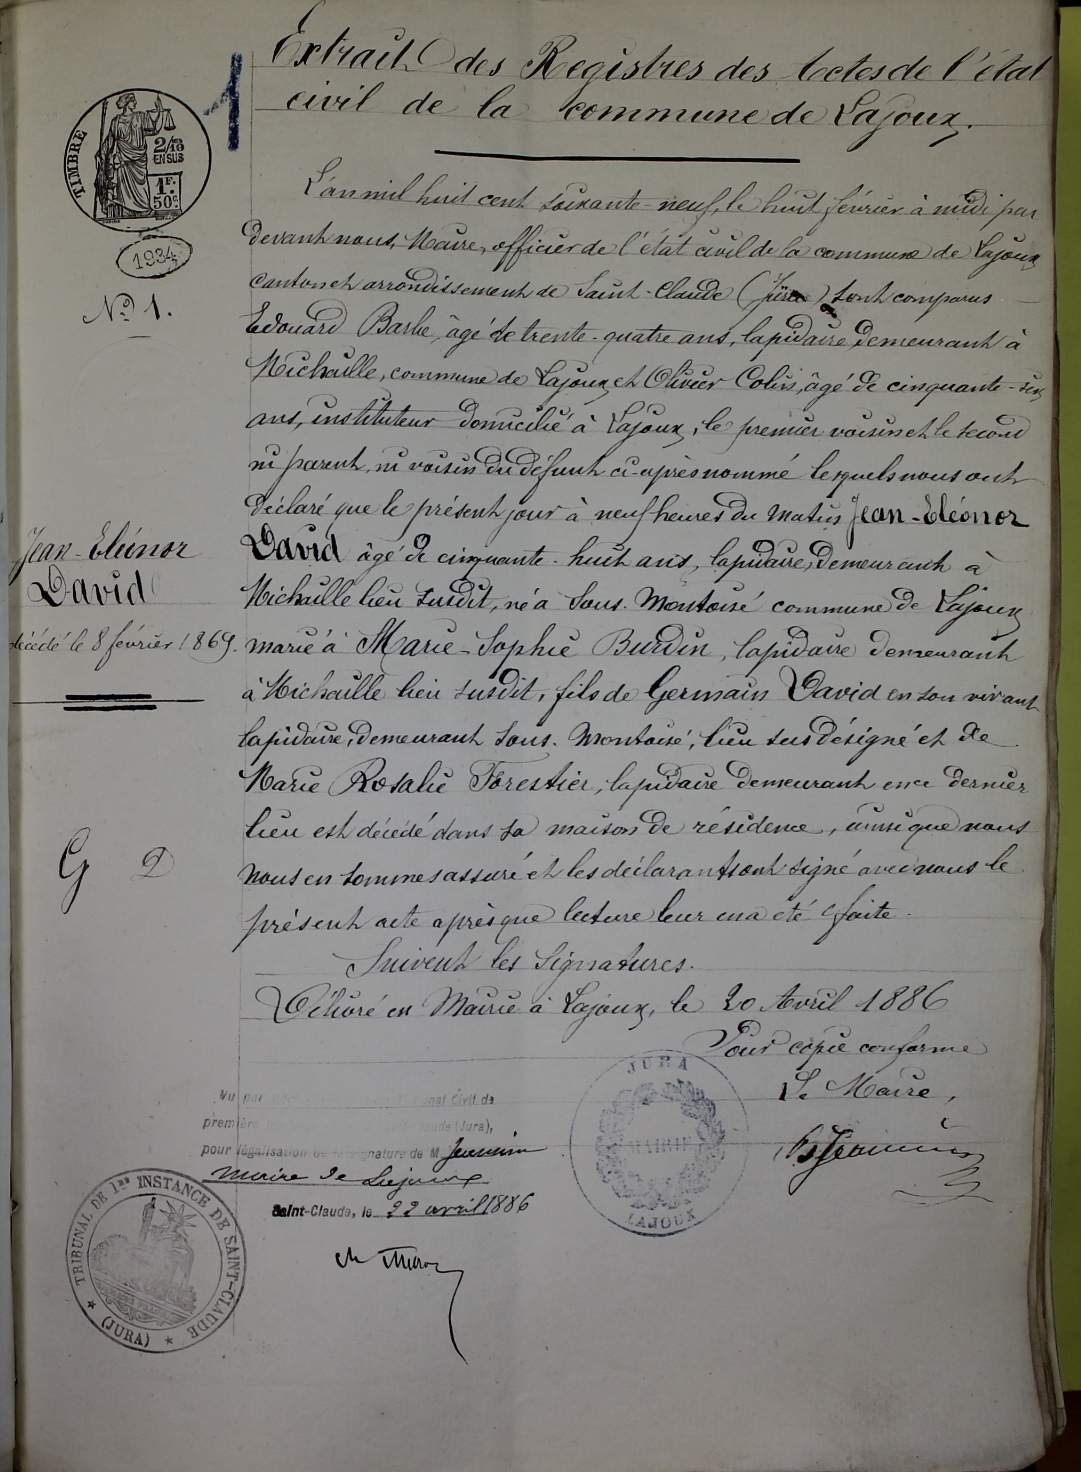 Extrait des Registres des Actes de l'état
civil de la commune de Lajoux.
TIMBRE
2/10
EN SUS
1 F.
50 c.
1934
1
N° 1.
L'an mil huit cent soixante-neuf, le huit février à midi par
devant nous, Maire, officier de l'état civil de la commune de Lajoux
canton et arrondissement de Saint-Claude (Jura) sont comparus
Edouard Barbe, âgé de trente-quatre ans, lapidaire, demeurant à
Michaille, commune de Lajoux et Olivier Colin, âgé de cinquante-six
ans, instituteur domicilié à Lajoux, le premier voisin et le second
ni parent, ni voisin du défunt ci-après nommé lesquels nous ont
déclaré que le présent jour à neuf heures du matin Jean-Eléonor
David âgé de cinquante-huit ans, lapidaire, demeurant à
Michaille lieu susdit, né à Sous-Montoisé commune de Lajoux
marié à Marie-Sophie Burdin, lapidaire demeurant
à Michaille lieu susdit, fils de Germain David en son vivant
lapidaire, demeurant Sous-Montoisé, lieu sus désigné et de
Marie Rosalie Forestier, lapidaire demeurant en ce dernier
lieu est décédé dans sa maison de résidence, ainsi que nous
nous en sommes assuré et les déclarants ont signé avec nous le
présent acte après que lecture leur en a été faite.
Suivent les Signatures.
Délivré en Mairie à Lajoux, le 20 Avril 1886
Pour copie conforme
Le Maire,
Jean-Eléonor
David
décédé le 8 février 1869.
G D
Vu par
Civil de
première
(Jura),
pour légalisation de la signature de M. Jeannin
maire de Lajoux
Saint-Claude, le 22 avril 1886
JURA
MAIRIE
LAJOUX
TRIBUNAL DE 1re INSTANCE DE SAINT-CLAUDE
(JURA)